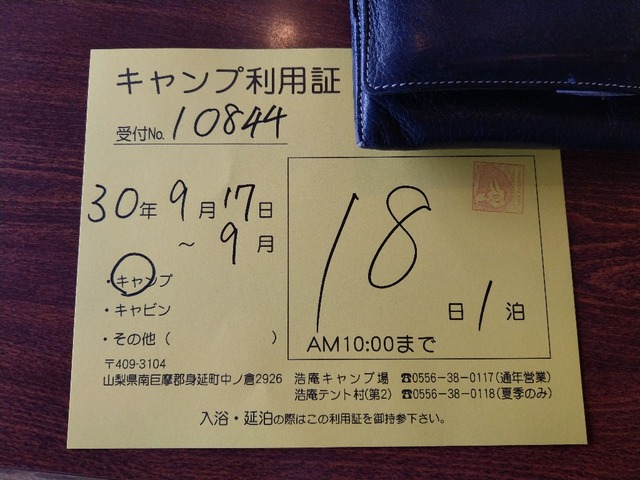 キャンプ利用証
受付No. 10844
30年 9月 17日
～ 9月
18日 1泊
AM10:00まで
・キャンプ
・キャビン
・その他（　　　　　）
〒409-3104
山梨県南巨摩郡身延町中ノ倉2926 浩庵キャンプ場 ☎0556-38-0117(通年営業)
浩庵テント村(第2) ☎0556-38-0118(夏季のみ)
入浴・延泊の際はこの利用証を御持参下さい。